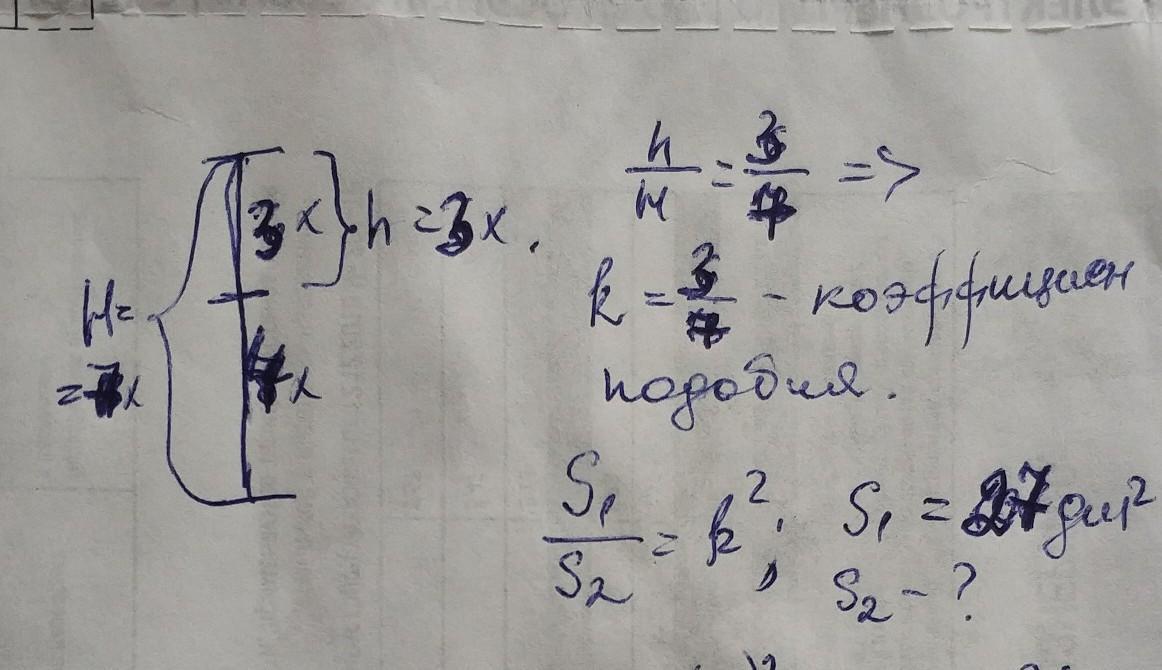 h/H = 3/7 =>
3x } h = 3x.
H=
=7x
4x
k = 3/7 - коэффициен
подобия.
S₁/S₂ = k²; S₁ = 27 дм²
S₂ - ?